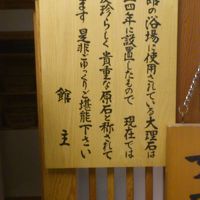 館の浴場に使用されている大理石は
四年に設置したもので 現在では
珍らしく貴重な原石と称されて
ます 是非ごゆっくりご堪能下さい
館 主